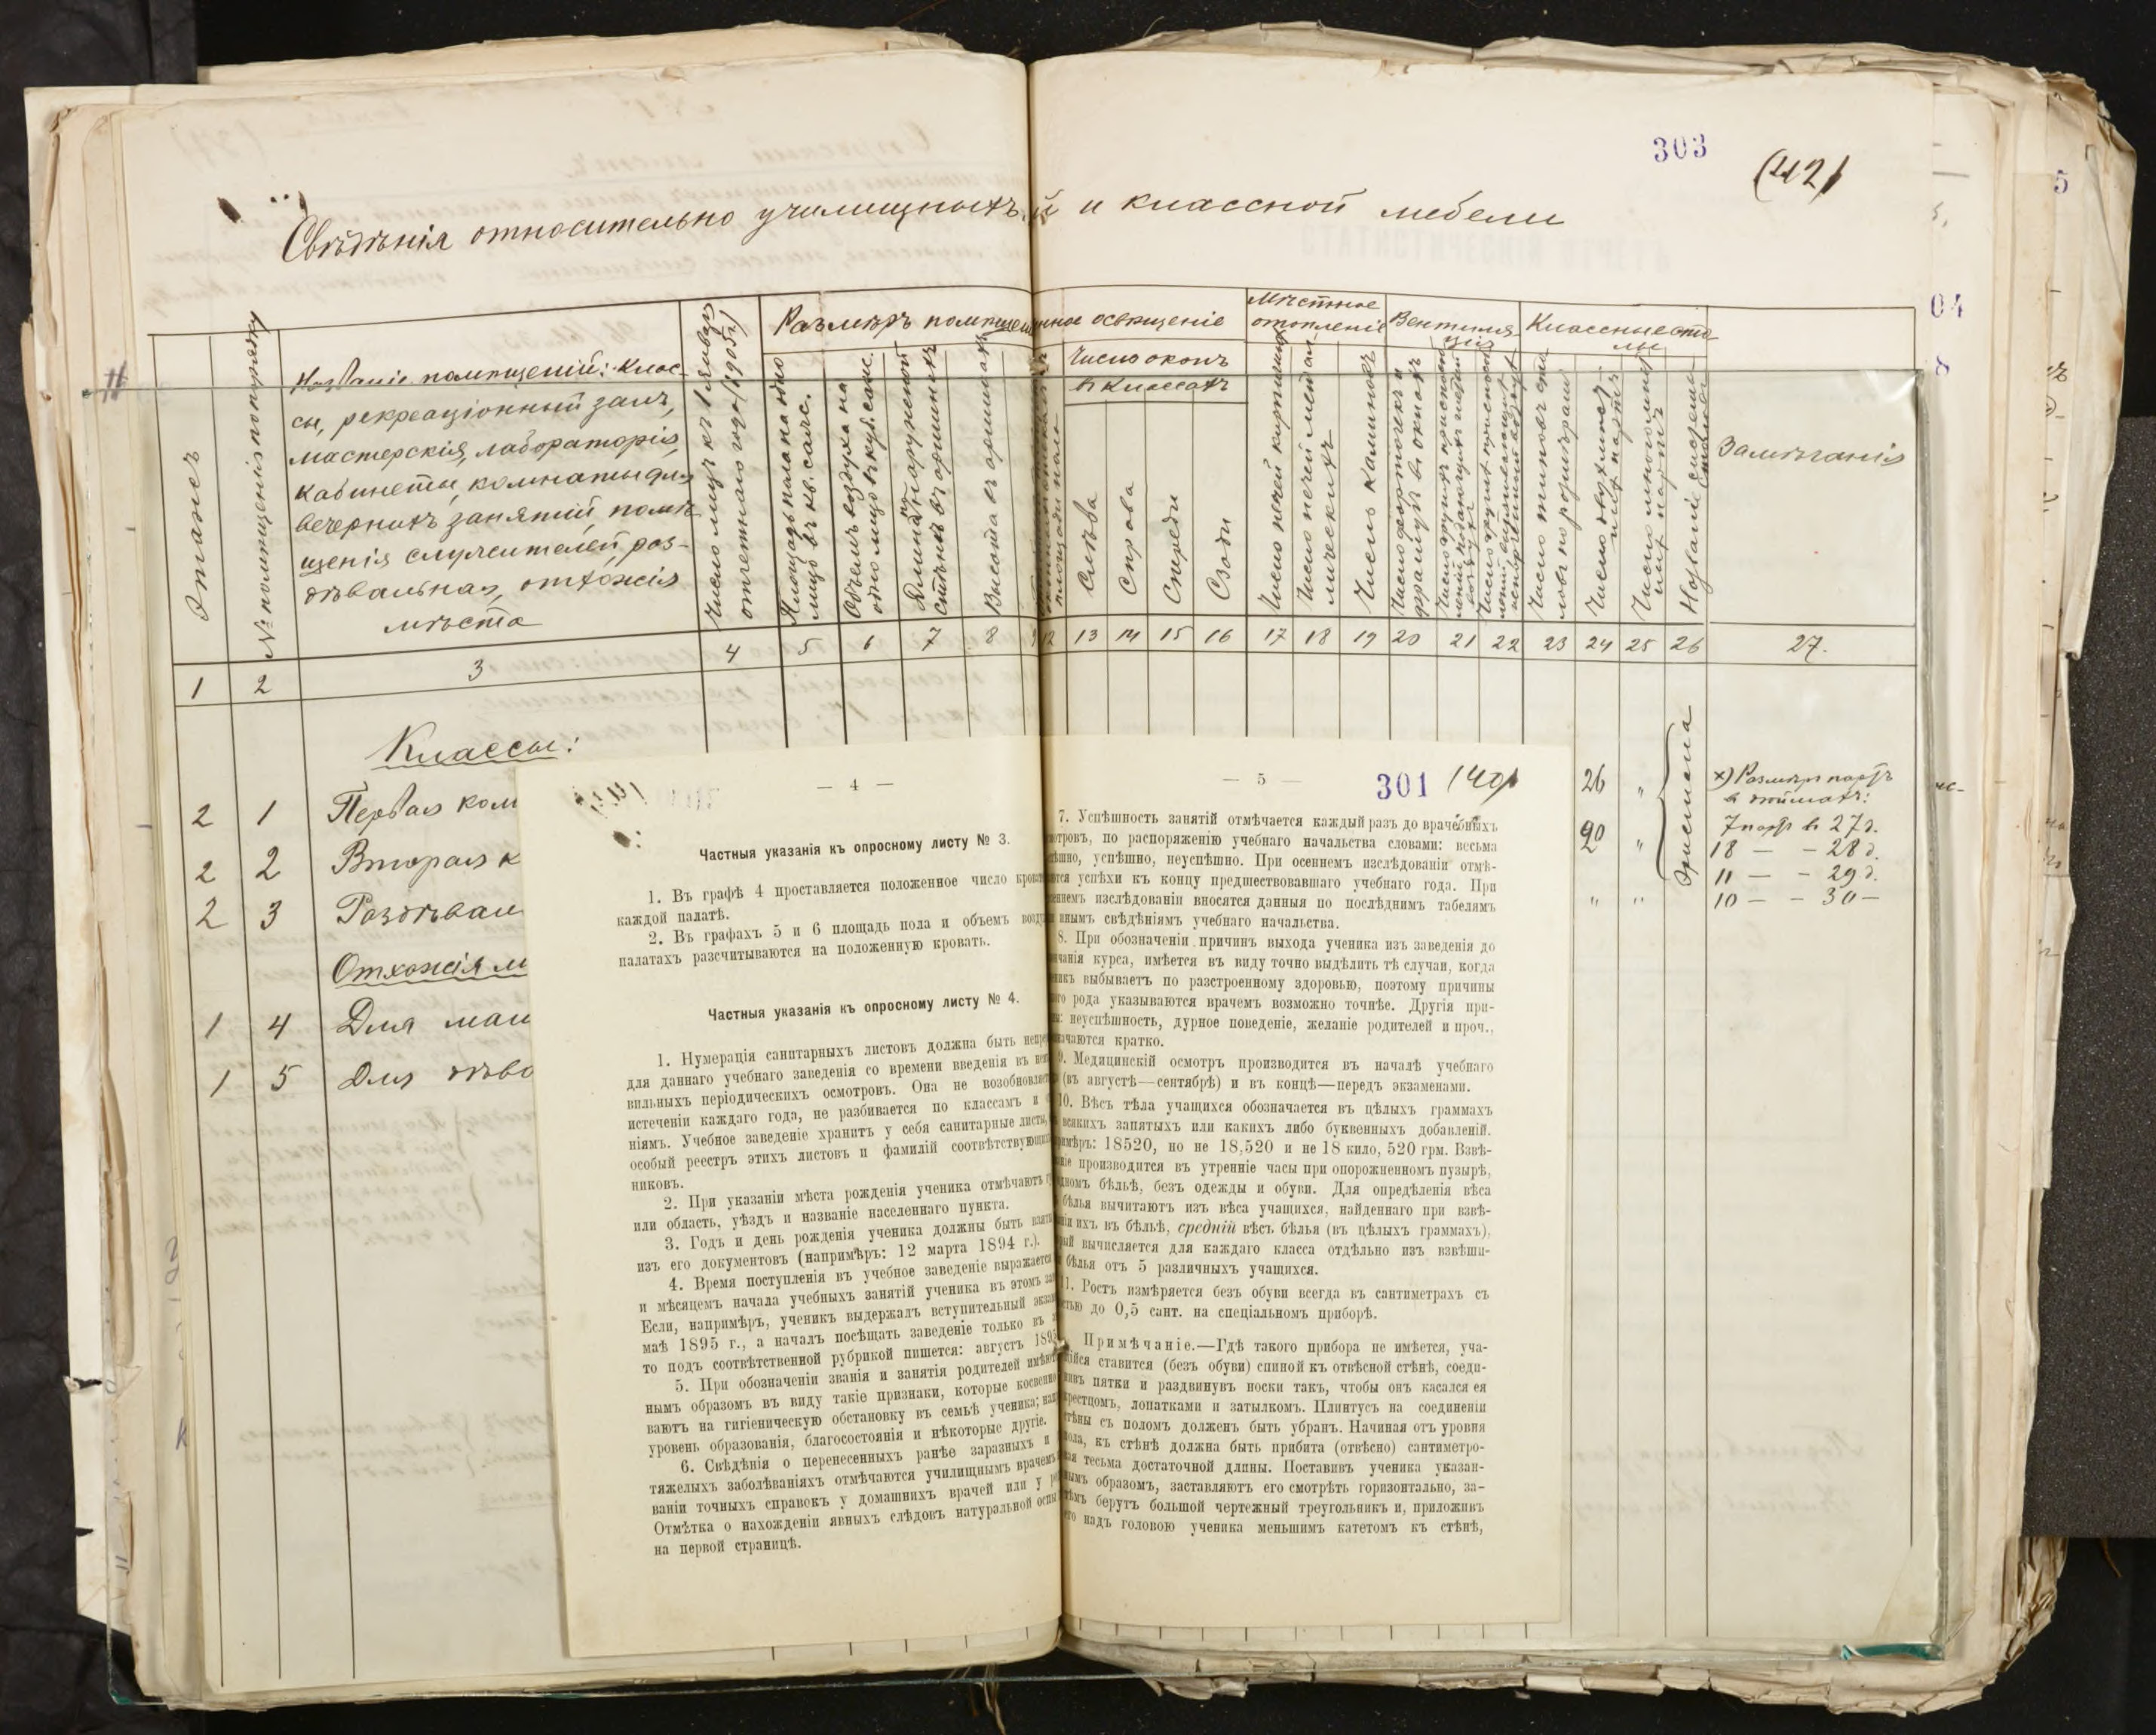 303 (42)
Свѣдѣнія относительно училищныхъ и классной мебели
Этажъ
№ помѣщенія по порядку
Названіе помѣщеній: клас-
сы, рекреаціонный залъ,
мастерскія, лабораторія,
кабинеты, комнаты для
вечернихъ занятій, помѣ-
щенія служителей, раз-
дѣвальная, отхожія
мѣста
Число лицъ къ 1 Января
отчетнаго года (1905 г.)
Размѣръ помѣщен
Площадь пола на одно
лицо въ кв. саж.
Объемъ воздуха на
одно лицо въ куб. саж.
Длина наружной
стѣны въ аршинахъ
Высота въ аршинахъ
нное освѣщеніе
Число оконъ
въ классахъ
Слѣва
Справа
Спереди
Сзади
Мѣстное
отопленіе
Число печей кирпичныхъ
Число печей метал
лическихъ
Число каминовъ
Вентиля
ція
Число форточекъ и
фрамугъ въ окнахъ
Классные сто
лы
Число типовъ сто
ловъ по размѣрамъ
Число двухмѣст
ныхъ партъ
Число многомѣст
ныхъ партъ
Названіе системы
Замѣчанія
1 2 3 4 5 6 7 8 12 13 14 15 16 17 18 19 20 21 22 23 24 25 26 27.
Классы:
2 1 Первая ком
2 2 Вторая к
2 3 Раздѣвал
Отхожія м
1 4 Для мал
1 5 Для дѣво
26 "
20 "
" "
Эрисмана
х) Размѣръ партъ
въ дюймахъ:
7 партъ въ 27 д.
18 — - 28 д.
11 — - 29 д.
10 — - 30 —
— 4 —
Частныя указанія къ опросному листу № 3.
1. Въ графѣ 4 проставляется положенное число крова
каждой палатѣ.
2. Въ графахъ 5 и 6 площадь пола и объемъ возд
палатахъ разсчитываются на положенную кровать.
Частныя указанія къ опросному листу № 4.
1. Нумерація санитарныхъ листовъ должна быть непре
для даннаго учебнаго заведенія со времени введенія въ не
вильныхъ періодическихъ осмотровъ. Она не возобновляет
истеченіи каждаго года, не разбивается по классамъ и
ніямъ. Учебное заведеніе хранитъ у себя санитарные листы,
особый реестръ этихъ листовъ и фамилій соотвѣтствующих
никовъ.
2. При указаніи мѣста рожденія ученика отмѣчаютъ г
или область, уѣздъ и названіе населеннаго пункта.
3. Годъ и день рожденія ученика должны быть взяты
изъ его документовъ (напримѣръ: 12 марта 1894 г.).
4. Время поступленія въ учебное заведеніе выражается
и мѣсяцемъ начала учебныхъ занятій ученика въ этомъ за
Если, напримѣръ, ученикъ выдержалъ вступительный экза
маѣ 1895 г., а началъ посѣщать заведеніе только въ
то подъ соотвѣтственной рубрикой пишется: августъ 189
5. При обозначеніи званія и занятія родителей имѣю
нымъ образомъ въ виду такіе признаки, которые косвенно
ваютъ на гигіеническую обстановку въ семьѣ ученика; на
уровень образованія, благосостоянія и нѣкоторые другіе.
6. Свѣдѣнія о перенесенныхъ ранѣе заразныхъ и
тяжелыхъ заболѣваніяхъ отмѣчаются училищнымъ врачемъ
ваніи точныхъ справокъ у домашнихъ врачей или у р
Отмѣтка о нахожденіи явныхъ слѣдовъ натуральной оспы
на первой страницѣ.
— 5 — 301 (40)
7. Успѣшность занятій отмѣчается каждый разъ до врачебныхъ
отровъ, по распоряженію учебнаго начальства словами: весьма
ѣшно, успѣшно, неуспѣшно. При осеннемъ изслѣдованіи отмѣ-
ются успѣхи къ концу предшествовавшаго учебнаго года. При
еннемъ изслѣдованіи вносятся данныя по послѣднимъ табелямъ
инымъ свѣдѣніямъ учебнаго начальства.
8. При обозначеніи причинъ выхода ученика изъ заведенія до
нчанія курса, имѣется въ виду точно выдѣлить тѣ случаи, когда
никъ выбываетъ по разстроенному здоровью, поэтому причины
го рода указываются врачемъ возможно точнѣе. Другія при-
ы: неуспѣшность, дурное поведеніе, желаніе родителей и проч.,
ачаются кратко.
9. Медицинскій осмотръ производится въ началѣ учебнаго
(въ августѣ—сентябрѣ) и въ концѣ—передъ экзаменами.
10. Вѣсъ тѣла учащихся обозначается въ цѣлыхъ граммахъ
всякихъ запятыхъ или какихъ либо буквенныхъ добавленій.
имѣръ: 18520, но не 18,520 и не 18 кило, 520 грм. Взвѣ-
ніе производится въ утренніе часы при опорожненномъ пузырѣ,
дномъ бѣльѣ, безъ одежды и обуви. Для опредѣленія вѣса
бѣлья вычитаютъ изъ вѣса учащихся, найденнаго при взвѣ-
ніи ихъ въ бѣльѣ, средній вѣсъ бѣлья (въ цѣлыхъ граммахъ),
рый вычисляется для каждаго класса отдѣльно изъ взвѣши-
бѣлья отъ 5 различныхъ учащихся.
11. Ростъ измѣряется безъ обуви всегда въ сантиметрахъ съ
стью до 0,5 сант. на спеціальномъ приборѣ.
Примѣчаніе.—Гдѣ такого прибора не имѣется, уча-
щійся ставится (безъ обуви) спиной къ отвѣсной стѣнѣ, соеди-
нивъ пятки и раздвинувъ носки такъ, чтобы онъ касался ея
крестцомъ, лопатками и затылкомъ. Плинтусъ на соединеніи
стѣны съ поломъ долженъ быть убранъ. Начиная отъ уровня
пола, къ стѣнѣ должна быть прибита (отвѣсно) сантиметро-
ая тесьма достаточной длины. Поставивъ ученика указан-
нымъ образомъ, заставляютъ его смотрѣть горизонтально, за-
тѣмъ берутъ большой чертежный треугольникъ и, приложивъ
его надъ головою ученика меньшимъ катетомъ къ стѣнѣ,